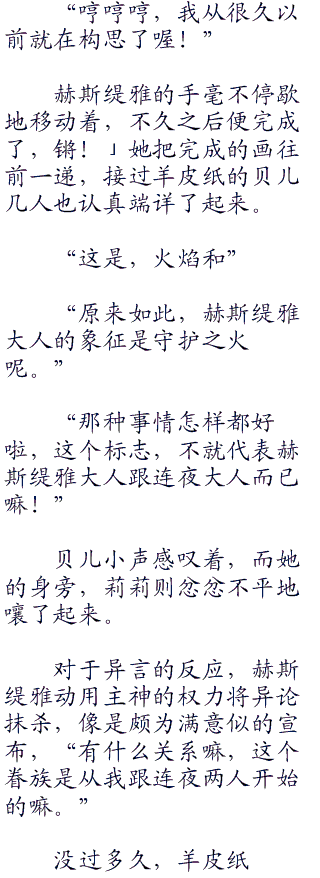 “哼哼哼，我从很久以
前就在构思了喔！”
赫斯缇雅的手毫不停歇
地移动着，不久之后便完成
了，锵！」她把完成的画往
前一递，接过羊皮纸的贝儿
几人也认真端详了起来。
“这是，火焰和”
“原来如此，赫斯缇雅
大人的象征是守护之火
呢。”
“那种事情怎样都好
啦，这个标志，不就代表赫
斯缇雅大人跟连夜大人而已
嘛！”
贝儿小声感叹着，而她
的身旁，莉莉则忿忿不平地
嚷了起来。
对于异言的反应，赫斯
缇雅动用主神的权力将异论
抹杀，像是颇为满意似的宣
布，“有什么关系嘛，这个
眷族是从我跟连夜两人开始
的嘛。”
没过多久，羊皮纸